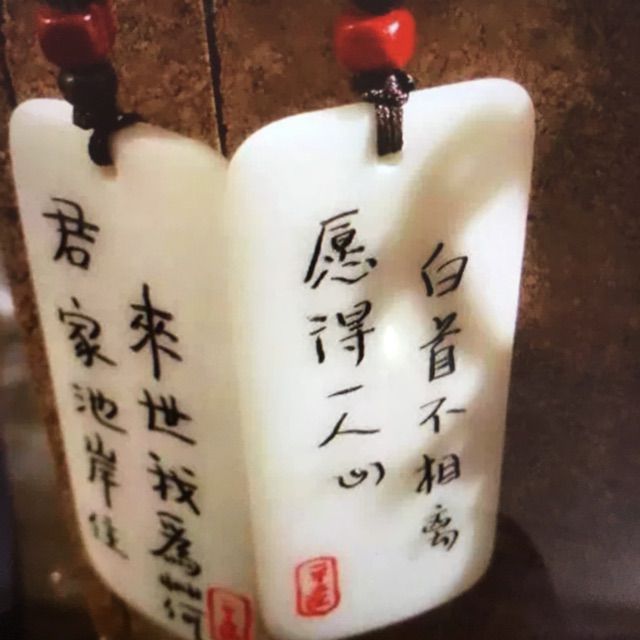 君家池岸住
來世我爲荷
愿得一人心
白首不相离